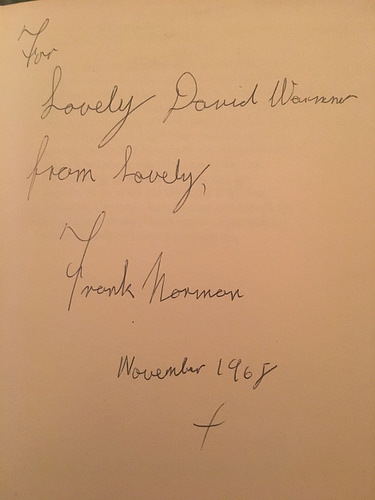 For
Lovely David Warner
from Lovely,
Frank Norman
November
x